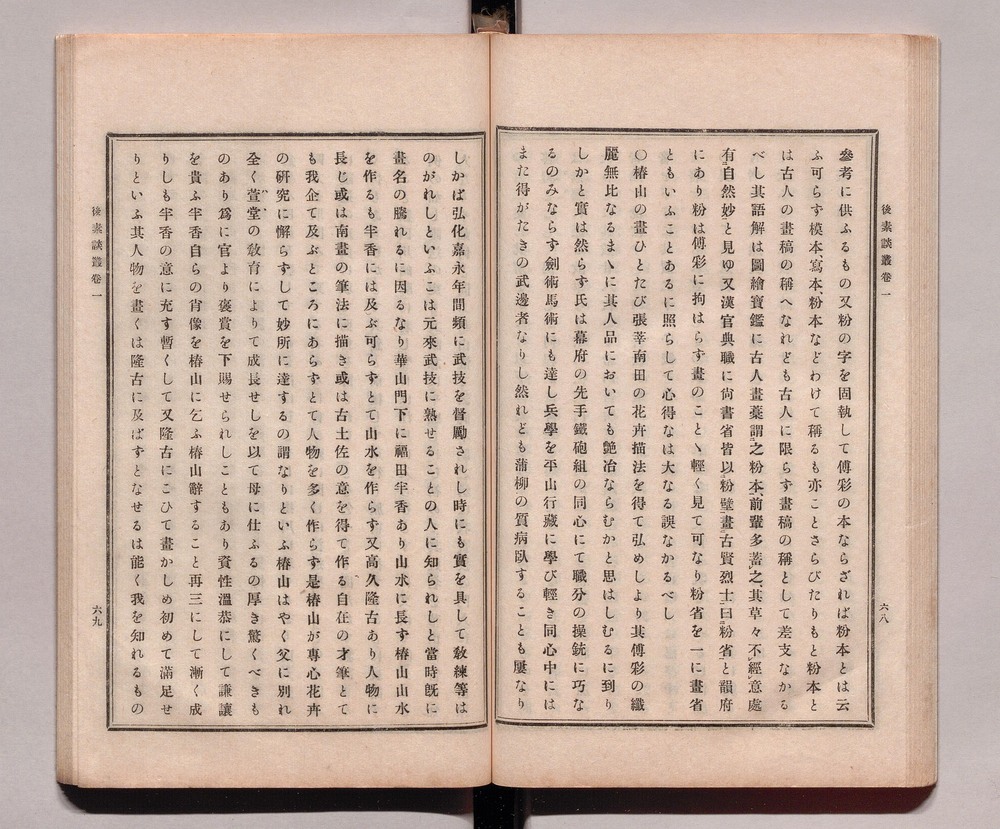 後素談叢卷一
六八
參考に供ふるもの又粉の字を固執して傅彩の本ならざれば粉本とは云
ふ可らす模本、寫本、粉本などわけて稱るも亦ことさらびたりもと粉本と
は古人の畫稿の稱へなれども古人に限らす畫稿の稱として差支なかる
べし其語解は圖繪寶鑑に古人畫藁謂之粉本、前輩多蓄之、其草々不經意處
有自然妙と見ゆ又漢官典職に尙書省皆以粉壁畫古賢烈士曰粉省と韻府
にあり粉は傅彩に拘はらす畫のことゝ輕く見て可なり粉省を一に畫省
ともいふことあるに照らして心得なは大なる誤なかるべし
○椿山の畫ひとたび張莘南田の花卉描法を得て弘めしより其傅彩の纖
麗無比なるまゝに其人品においても艶冶ならむかと思はしむるに到り
しかと實は然らす氏は幕府の先手鐵砲組の同心にて職分の操銃に巧な
るのみならす劍術馬術にも達し兵學を平山行藏に學び輕き同心中には
また得がたきの武邊者なりし然れども蒲柳の質病臥することも屢なり
しかば弘化嘉永年間頻に武技を督勵されし時にも實を具して敎練等は
のがれしといふこは元來武技に熟せることの人に知られしと當時旣に
畫名の騰れるに因るなり華山門下に福田半香あり山水に長す椿山山水
を作るも半香には及ぶ可らすとて山水を作らす又高久隆古あり人物に
長じ或は南畫の筆法に描き或は古土佐の意を得て作る自在の才筆とて
も我企て及ぶところにあらすとて人物を多く作らす是椿山が專心花卉
の硏究に懈らすして妙所に達するの謂なりといふ椿山はやく父に別れ
全く萱堂の敎育によりて成長せしを以て母に仕ふるの厚き驚くべきも
のあり爲に官より褒賞を下賜せられしこともあり資性溫恭にして謙讓
を貴ふ半香自らの肖像を椿山に乞ふ椿山辭すること再三にして漸く成
りしも半香の意に充す暫くして又隆古にこひて畫かしめ初めて滿足せ
りといふ其人物を畫くは隆古に及ばすとなせるは能く我を知れるもの
後素談叢卷一
六九